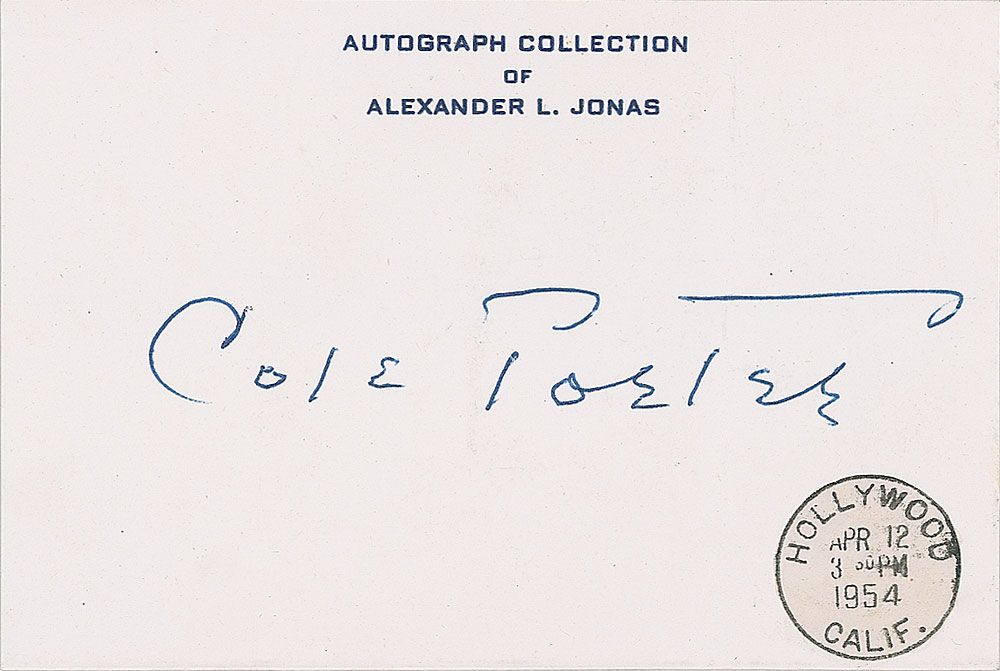 AUTOGRAPH COLLECTION
OF
ALEXANDER L. JONAS
Cole Porter
HOLLYWOOD
APR 12
3 30 PM
1954
CALIF.